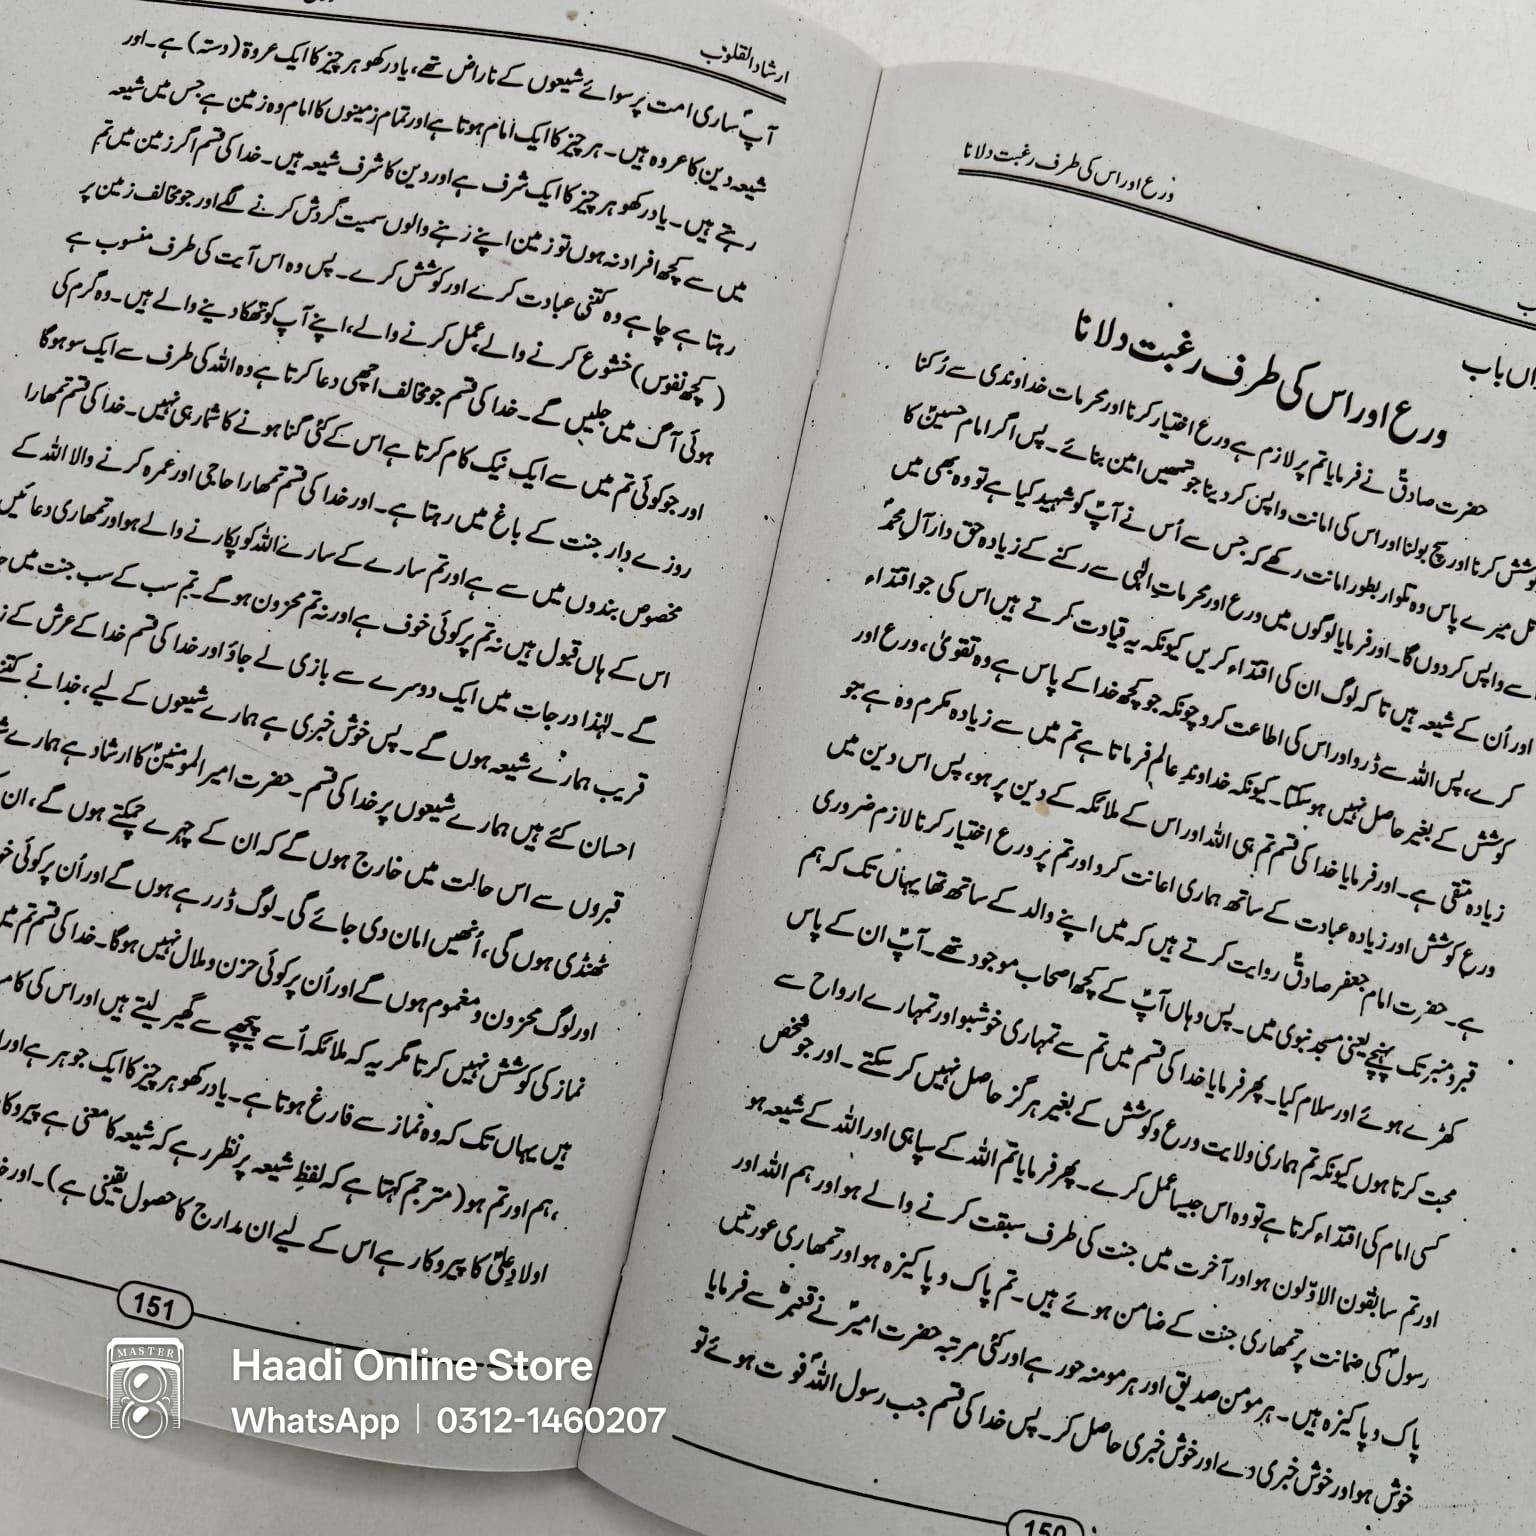 ورع اور اس کی طرف رغبت دلانا
اں باب
ورع اور اس کی طرف رغبت دلانا
حضرت صادقؑ نے فرمایا تم پر لازم ہے ورع اختیار کرنا اور محرمات خداوندی سے رُکنا
کوشش کرنا اور سچ بولنا اور اس کی امانت واپس کر دینا جو تمھیں امین بنائے۔ پس اگر امام حسینؑ کا
میرے پاس وہ تلوار بطور امانت رکھے کہ جس سے اُس نے آپؑ کو شہید کیا ہے تو وہ بھی میں
سے واپس کر دوں گا۔ اور فرمایا لوگوں میں ورع اور محرمات الٰہی سے رکنے کے زیادہ حق دار آل محمدؐ
اور اُن کے شیعہ ہیں تاکہ لوگ ان کی اقتداء کریں کیونکہ یہ قیادت کرتے ہیں اس کی جو اقتداء
کرے، پس اللہ سے ڈرو اور اس کی اطاعت کرو چونکہ جو کچھ خدا کے پاس ہے وہ تقویٰ، ورع اور
کوشش کے بغیر حاصل نہیں ہو سکتا۔ کیونکہ خداوند عالم فرماتا ہے تم میں سے زیادہ مکرم وہ ہے جو
زیادہ متقی ہے۔ اور فرمایا خدا کی قسم تم ہی اللہ اور اس کے ملائکہ کے دین پر ہو، پس اس دین میں
ورع کوشش اور زیادہ عبادت کے ساتھ ہماری اعانت کرو اور تم پر ورع اختیار کرنا لازم ضروری
ہے۔ حضرت امام جعفر صادقؑ روایت کرتے ہیں کہ میں اپنے والد کے ساتھ تھا یہاں تک کہ ہم
قبر و منبر تک پہنچے یعنی مسجد نبوی میں۔ پس وہاں آپؑ کے کچھ اصحاب موجود تھے۔ آپؑ ان کے پاس
کھڑے ہوئے اور سلام کیا۔ پھر فرمایا خدا کی قسم میں تم سے تمہاری خوشبو اور تمہارے ارواح سے
محبت کرتا ہوں کیونکہ تم ہماری ولایت ورع و کوشش کے بغیر ہرگز حاصل نہیں کر سکتے۔ اور جو شخص
کسی امام کی اقتداء کرتا ہے تو وہ اس جیسا عمل کرے۔ پھر فرمایا تم اللہ کے سپاہی اور اللہ کے شیعہ ہو
اور تم سابقون الاوّلون ہو اور آخرت میں جنت کی طرف سبقت کرنے والے ہو اور ہم اللہ اور
رسولؐ کی ضمانت پر تمھاری جنت کے ضامن ہوئے ہیں۔ تم پاک و پاکیزہ ہو اور تمھاری عورتیں
پاک و پاکیزہ ہیں۔ ہر مومن صدیق اور ہر مومنہ حور ہے اور کئی مرتبہ حضرت امیرؑ نے قنبرؓ سے فرمایا
خوش ہو اور خوش خبری دے اور خوش خبری حاصل کر۔ پس خدا کی قسم جب رسول اللہؐ فوت ہوئے تو
150
ارشاد القلوب
آپؐ ساری امت پر سوائے شیعوں کے ناراض تھے، یاد رکھو ہر چیز کا ایک عروۃ (دستہ) ہے۔ اور
شیعہ دین کا عروہ ہیں۔ ہر چیز کا ایک امام ہوتا ہے اور تمام زمینوں کا امام وہ زمین ہے جس میں شیعہ
رہتے ہیں۔ یاد رکھو ہر چیز کا ایک شرف ہے اور دین کا شرف شیعہ ہیں۔ خدا کی قسم اگر زمین میں تم
میں سے کچھ افراد نہ ہوں تو زمین اپنے رہنے والوں سمیت گردش کرنے لگے اور جو مخالف زمین پر
رہتا ہے چاہے وہ کتنی عبادت کرے اور کوشش کرے۔ پس وہ اس آیت کی طرف منسوب ہے
(کچھ نفوس) خشوع کرنے والے، عمل کرنے والے، اپنے آپ کو تھکا دینے والے ہیں۔ وہ گرم کی
ہوئی آگ میں جلیں گے۔ خدا کی قسم جو مخالف اچھی دعا کرتا ہے وہ اللہ کی طرف سے ایک سو ہو گا
اور جو کوئی تم میں سے ایک نیک کام کرتا ہے اس کے کئی گنا ہونے کا شمار ہی نہیں۔ خدا کی قسم تمھارا
روزے دار جنت کے باغ میں رہتا ہے۔ اور خدا کی قسم تمھارا حاجی اور عمرہ کرنے والا اللہ کے
مخصوص بندوں میں سے ہے اور تم سارے کے سارے اللہ کو پکارنے والے ہو اور تمھاری دعائیں
اس کے ہاں قبول ہیں نہ تم پر کوئی خوف ہے اور نہ تم محزون ہو گے۔ تم سب کے سب جنت میں
گے۔ لہٰذا درجات میں ایک دوسرے سے بازی لے جاؤ اور خدا کی قسم خدا کے عرش کے
قریب ہمارے شیعہ ہوں گے۔ پس خوش خبری ہے ہمارے شیعوں کے لیے، خدا نے کتنے
احسان کئے ہیں ہمارے شیعوں پر خدا کی قسم۔ حضرت امیر المومنینؑ کا ارشاد ہے ہمارے
قبروں سے اس حالت میں خارج ہوں گے کہ ان کے چہرے چمکتے ہوں گے، ان
ٹھنڈی ہوں گی، اُنھیں امان دی جائے گی۔ لوگ ڈر رہے ہوں گے اور اُن پر کوئی
اور لوگ محزون و مغموم ہوں گے اور اُن پر کوئی حزن و ملال نہیں ہوگا۔ خدا کی قسم تم میں
نماز کی کوشش نہیں کرتا مگر یہ کہ ملائکہ اُسے پیچھے سے گھیر لیتے ہیں اور اس کی
ہیں یہاں تک کہ وہ نماز سے فارغ ہوتا ہے۔ یاد رکھو ہر چیز کا ایک جوہر ہے اور
،ہم اور تم ہو (مترجم کہتا ہے کہ لفظ شیعہ پر نظر رہے کہ شیعہ کا معنی ہے
اولاد علیؑ کا پیروکار ہے اس کے لیے ان مدارج کا حصول یقینی ہے)۔ اور
151
MASTER
Haadi Online Store
WhatsApp | 0312-1460207